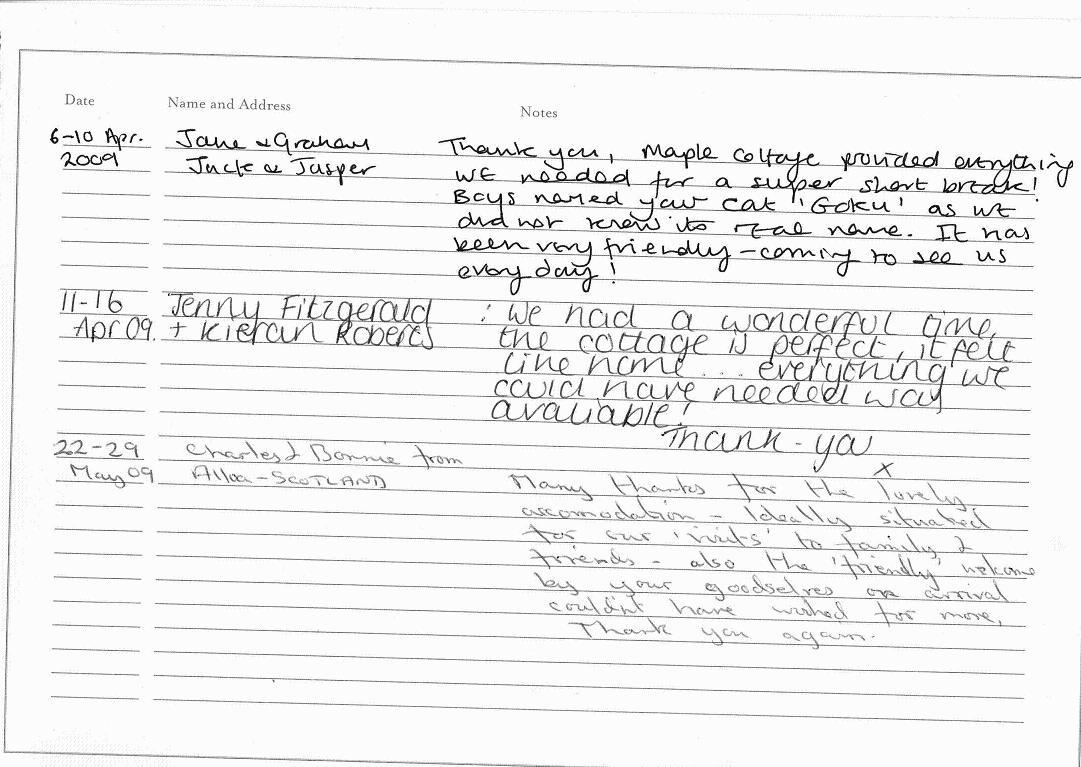 Date Name and Address Notes
6-10 Apr. Jane & Graham Thank you, Maple Cottage provided everything
2009 Jack & Jasper we needed for a super short break!
Boys named your cat 'Goku' as we
did not know its real name. It has
been very friendly - coming to see us
every day!
11-16 Jenny Fitzgerald : We had a wonderful time,
Apr 09. + Kieran Roberts the cottage is perfect, it felt
like home... everything we
could have needed way
avaliable!
Thank-you
x
22-29 Charles & Bonnie from
May 09 Alloa - SCOTLAND Many thanks for the lovely
accomodation - Ideally situated
for our 'visits' to family &
friends - also the 'friendly' welcome
by your goodselves on arrival
couldn't have wished for more,
Thank you again.